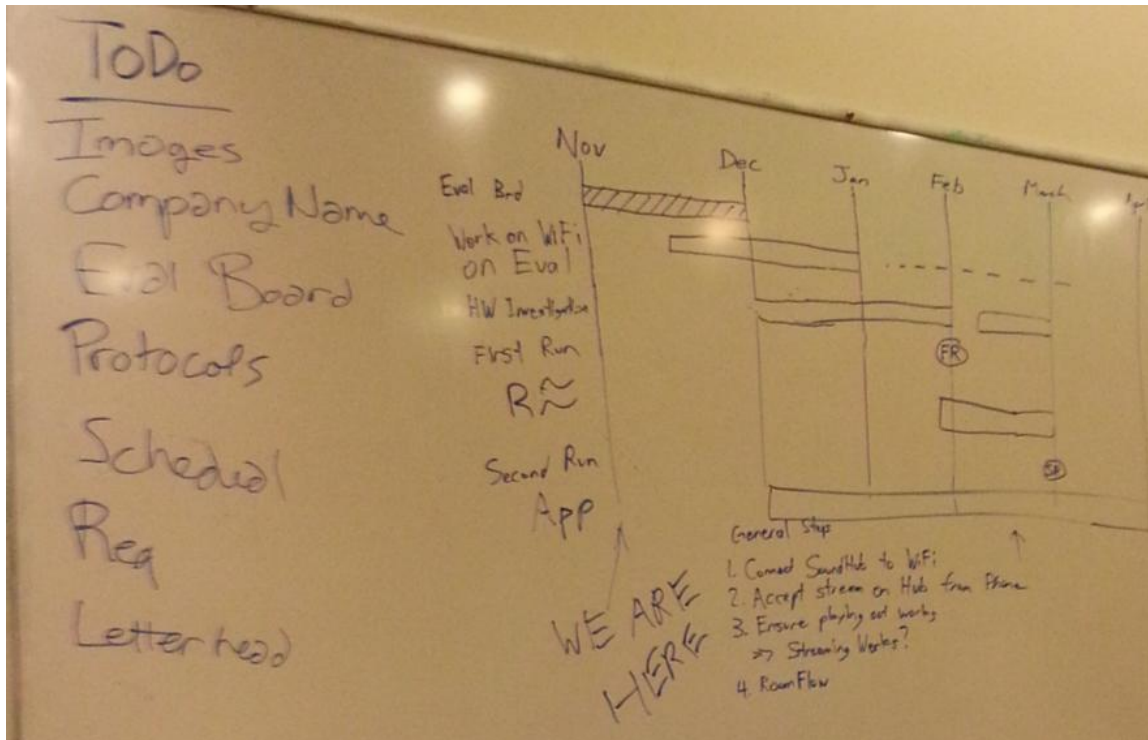 ToDo
Images
Company Name
Eval Board
Protocols
Schedual
Req
Letterhead
Nov
Dec
Jan
Feb
March
Eval Brd
Work on WiFi
on Eval
HW Investigation
First Run
FR
R
Second Run
SR
App
WE ARE
HERE
General Steps
1. Connect SoundHub to WiFi
2. Accept stream on Hub from Phone
3. Ensure playing out works
=> Streaming Works?
4. RoomFlow